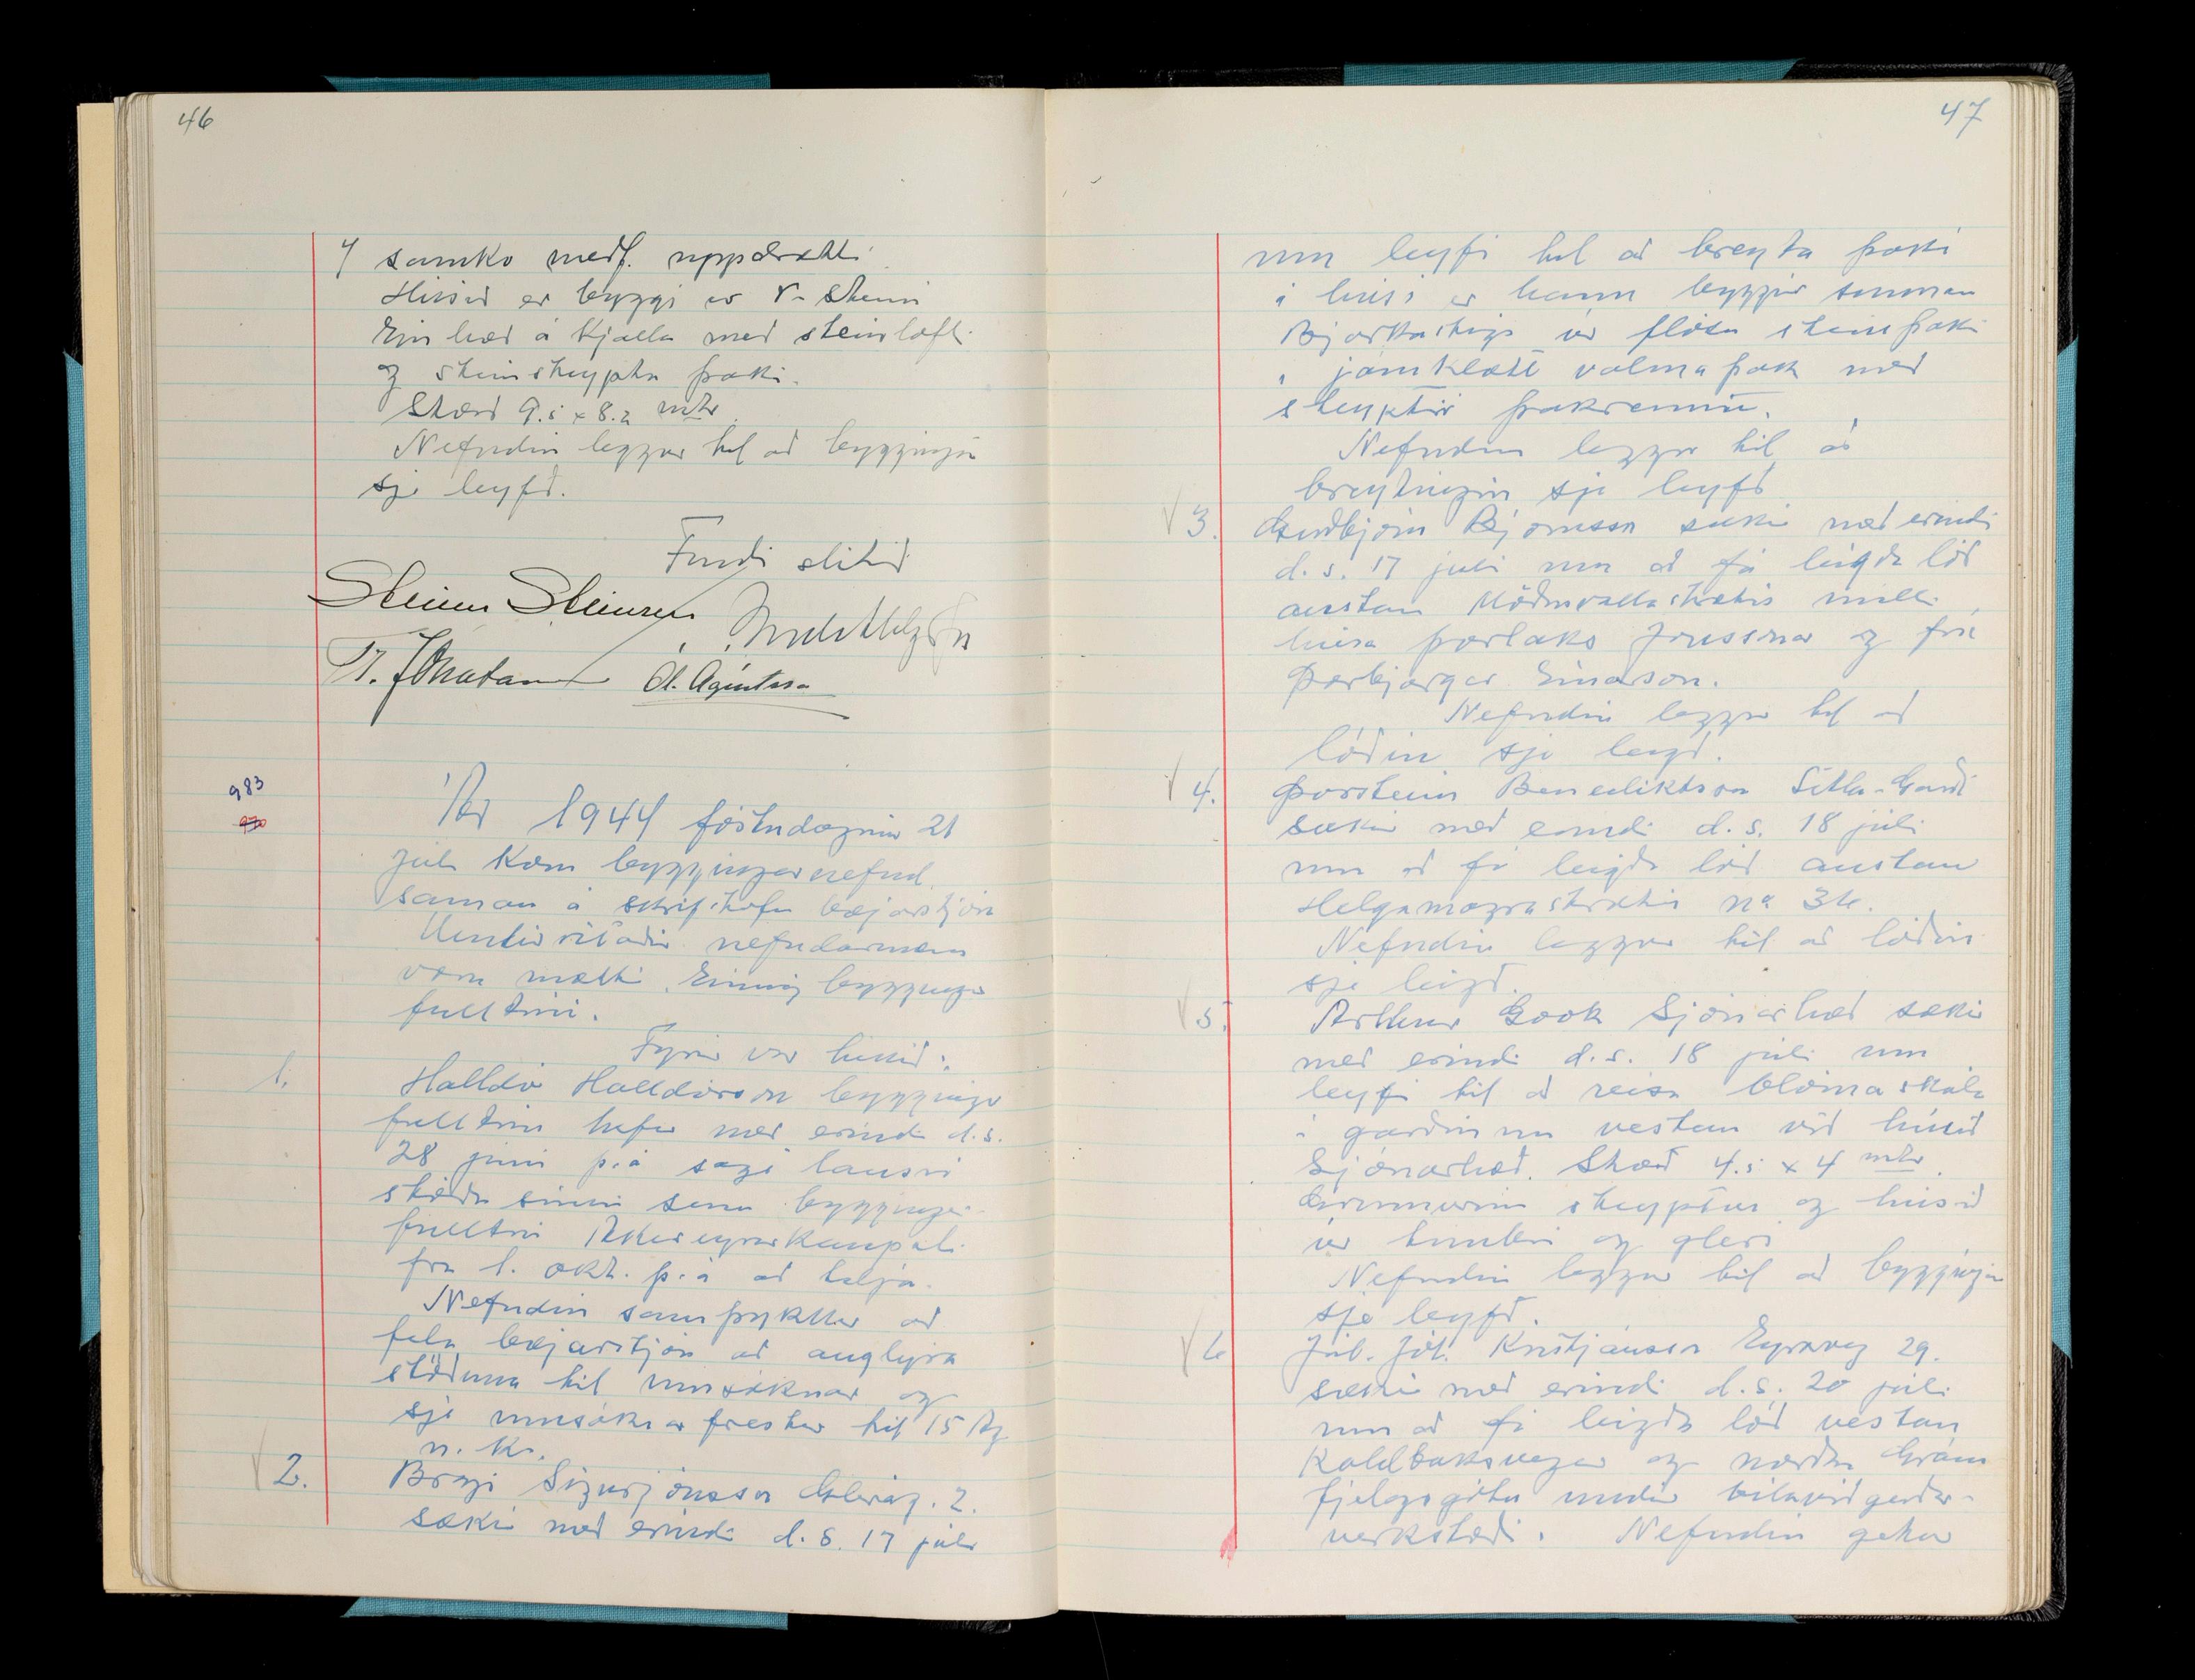 46
4 samkv meðf. uppdrætti
Húsið er byggt úr r- steini
Ein hæð á kjallara með steinlofti
og steinsteyptu þaki.
Stærð 9.5 x 8.2 mtr
Nefndin leggur til að byggingin
sje leyfð.
Fundi slitið
Steinn Steinsen
Ó. Ágústsson
983
Ár 1944 föstudaginn 21
júlí kom byggingarnefnd
saman á skrifstofu bæjarstjóra
Undirritaðir nefndarmenn
voru mættir. Einnig bygginga
fulltrúi.
Fyrir var tekið:
1.
Halldór Halldórsson bygginga
fulltrúi hefur með erindi d.s.
28 júní þ.á sagt lausri
stöðu sinni sem bygginga-
fulltrúi Akureyrarkaupst.
frá 1. okt. þ.á að telja.
Nefndin samþykkir að
fela bæjarstjóra að auglýsa
stöðuna til umsóknar og
sje umsóknarfrestur til 15 Ág
n. k.
2.
Bragi Sigurjónsson Glerág. 2.
sækir með erindi d.s. 17 júlí
47
um leyfi til að breyta þaki
á húsi er hann byggir sunnan
Bjarkastígs úr flötu steinþaki
í járnklætt valmaþak með
steyptri þakrennu.
Nefndin leggur til að
breytingin sje leyfð
3. Guðbjörn Björnsson sækir með erindi
d.s. 17 júlí um að fá leigða lóð
austan Möðruvallastrætis milli
húsa Þorláks Jónssonar og frú
Þorbjargar Einarson.
Nefndin leggur til að
lóðin sje leigð.
4. Þorsteinn Benediktsson Litla-Garði
sækir með erindi d.s. 18 júlí
um að fá leigða lóð austan
Helgamagrastrætis no 36.
Nefndin leggur til að lóðin
sje leigð.
5. Arthur Gook Sjónarhæð sækir
með erindi d.s. 18 júlí um
leyfi til að reisa blómaskála
í garðinum vestan við húsið
Sjónarhæð. Stærð 4.5 x 4 mtr
Grunnurinn steyptur og húsið
úr timbri og gleri
Nefndin leggur til að byggingin
sje leyfð.
6 Júl. Jóh. Kristjánsson Eyrarveg 29.
sækir með erindi d.s. 20 júlí
um að fá leigða lóð vestan
Kaldbaksvegar og norðan Grán
fjelagsgötu undir bílaviðgerðar-
verkstæði. Nefndin getur